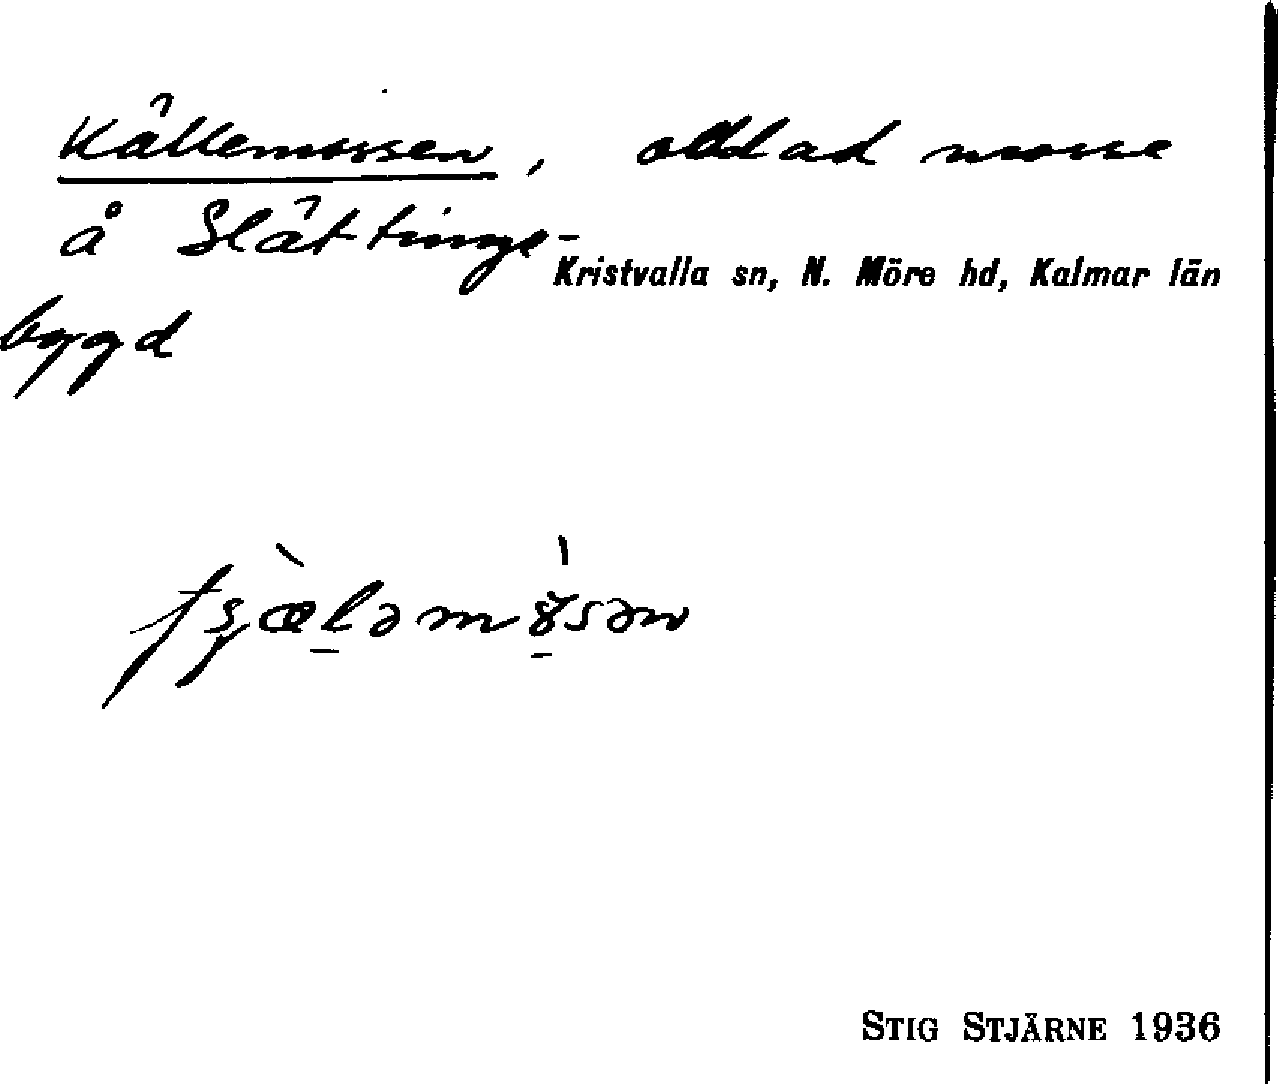 Källemossen, odlad mosse
å Slättinge-
Kristvalla sn, N. Möre hd, Kalmar län
bygd
STIG STJÄRNE 1936